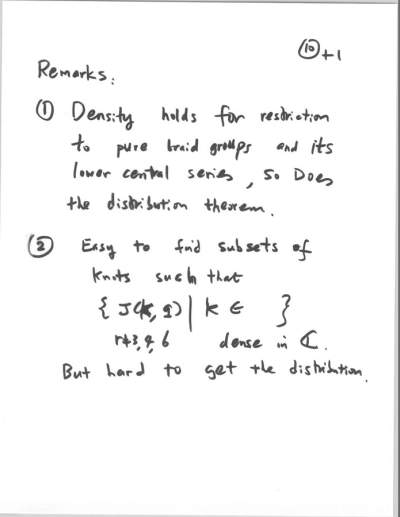 ⑩+1
Remarks:
① Density holds for restriction
to pure braid groups and its
lower central series, so Does
the distribution theorem.
② Easy to find subsets of
knots such that
{ J(K, q) | K ∈ }
r≠3,4,6 dense in ℂ.
But hard to get the distribution.